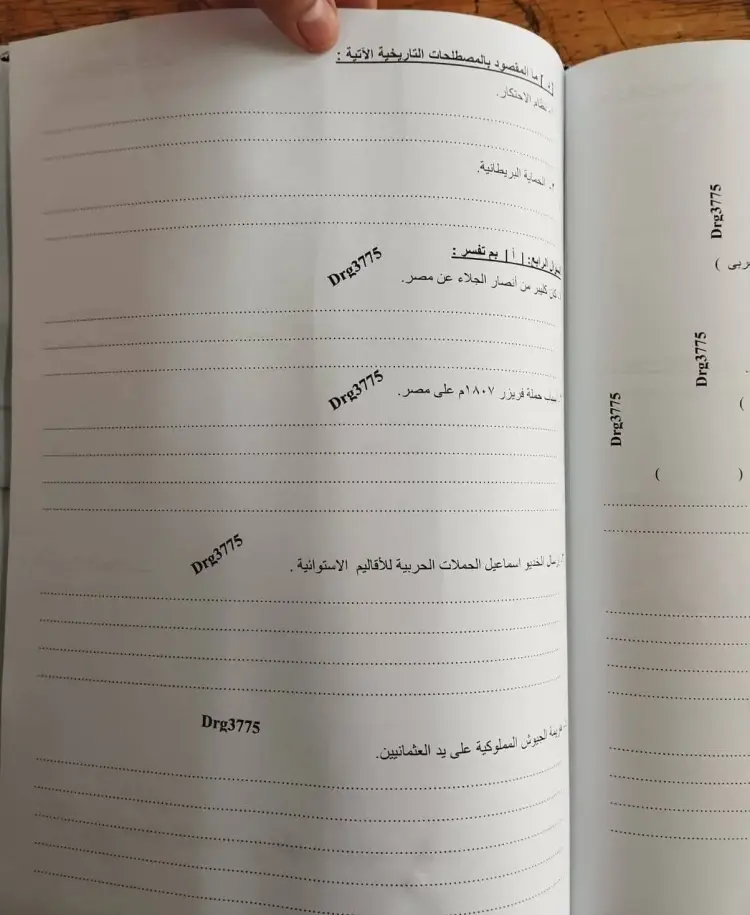 [د] ما المقصود بالمصطلحات التاريخية الآتية :
١. نظام الاحتكار.
٢. الحماية البريطانية.
السؤال الرابع: [ أ ] بم تفسر :
كان كليبر من أنصار الجلاء عن مصر.
Drg3775
أسباب حملة فريزر ١٨٠٧م على مصر.
Drg3775
إرسال الخديو اسماعيل الحملات الحربية للأقاليم الاستوائية .
Drg3775
هزيمة الجيوش المملوكية على يد العثمانيين.
Drg3775
Drg3775
( )
Drg3775
Drg3775
( )